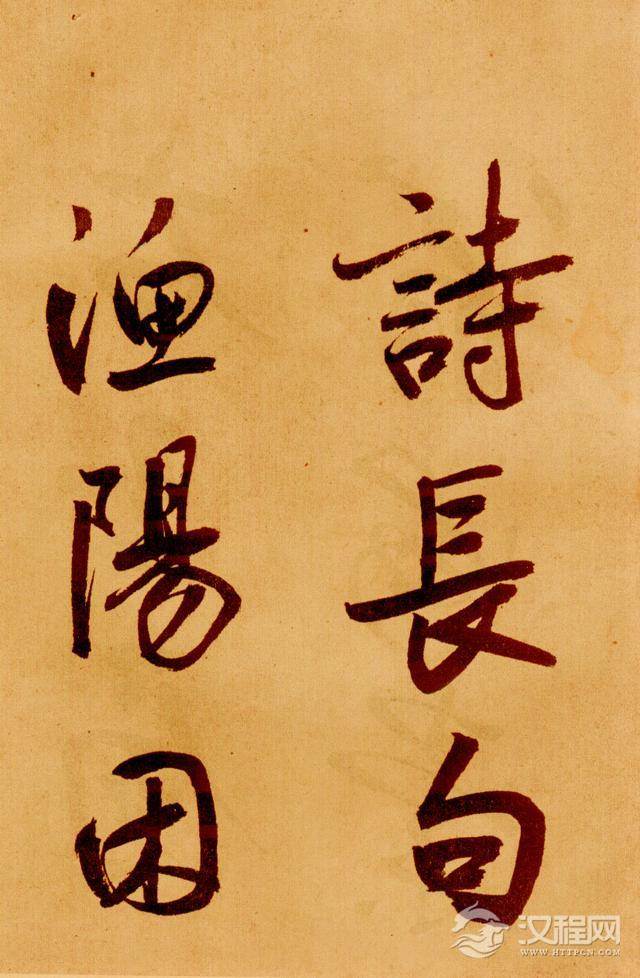 詩長句
漁陽困
汉程网
WWW.HTTPCN.COM